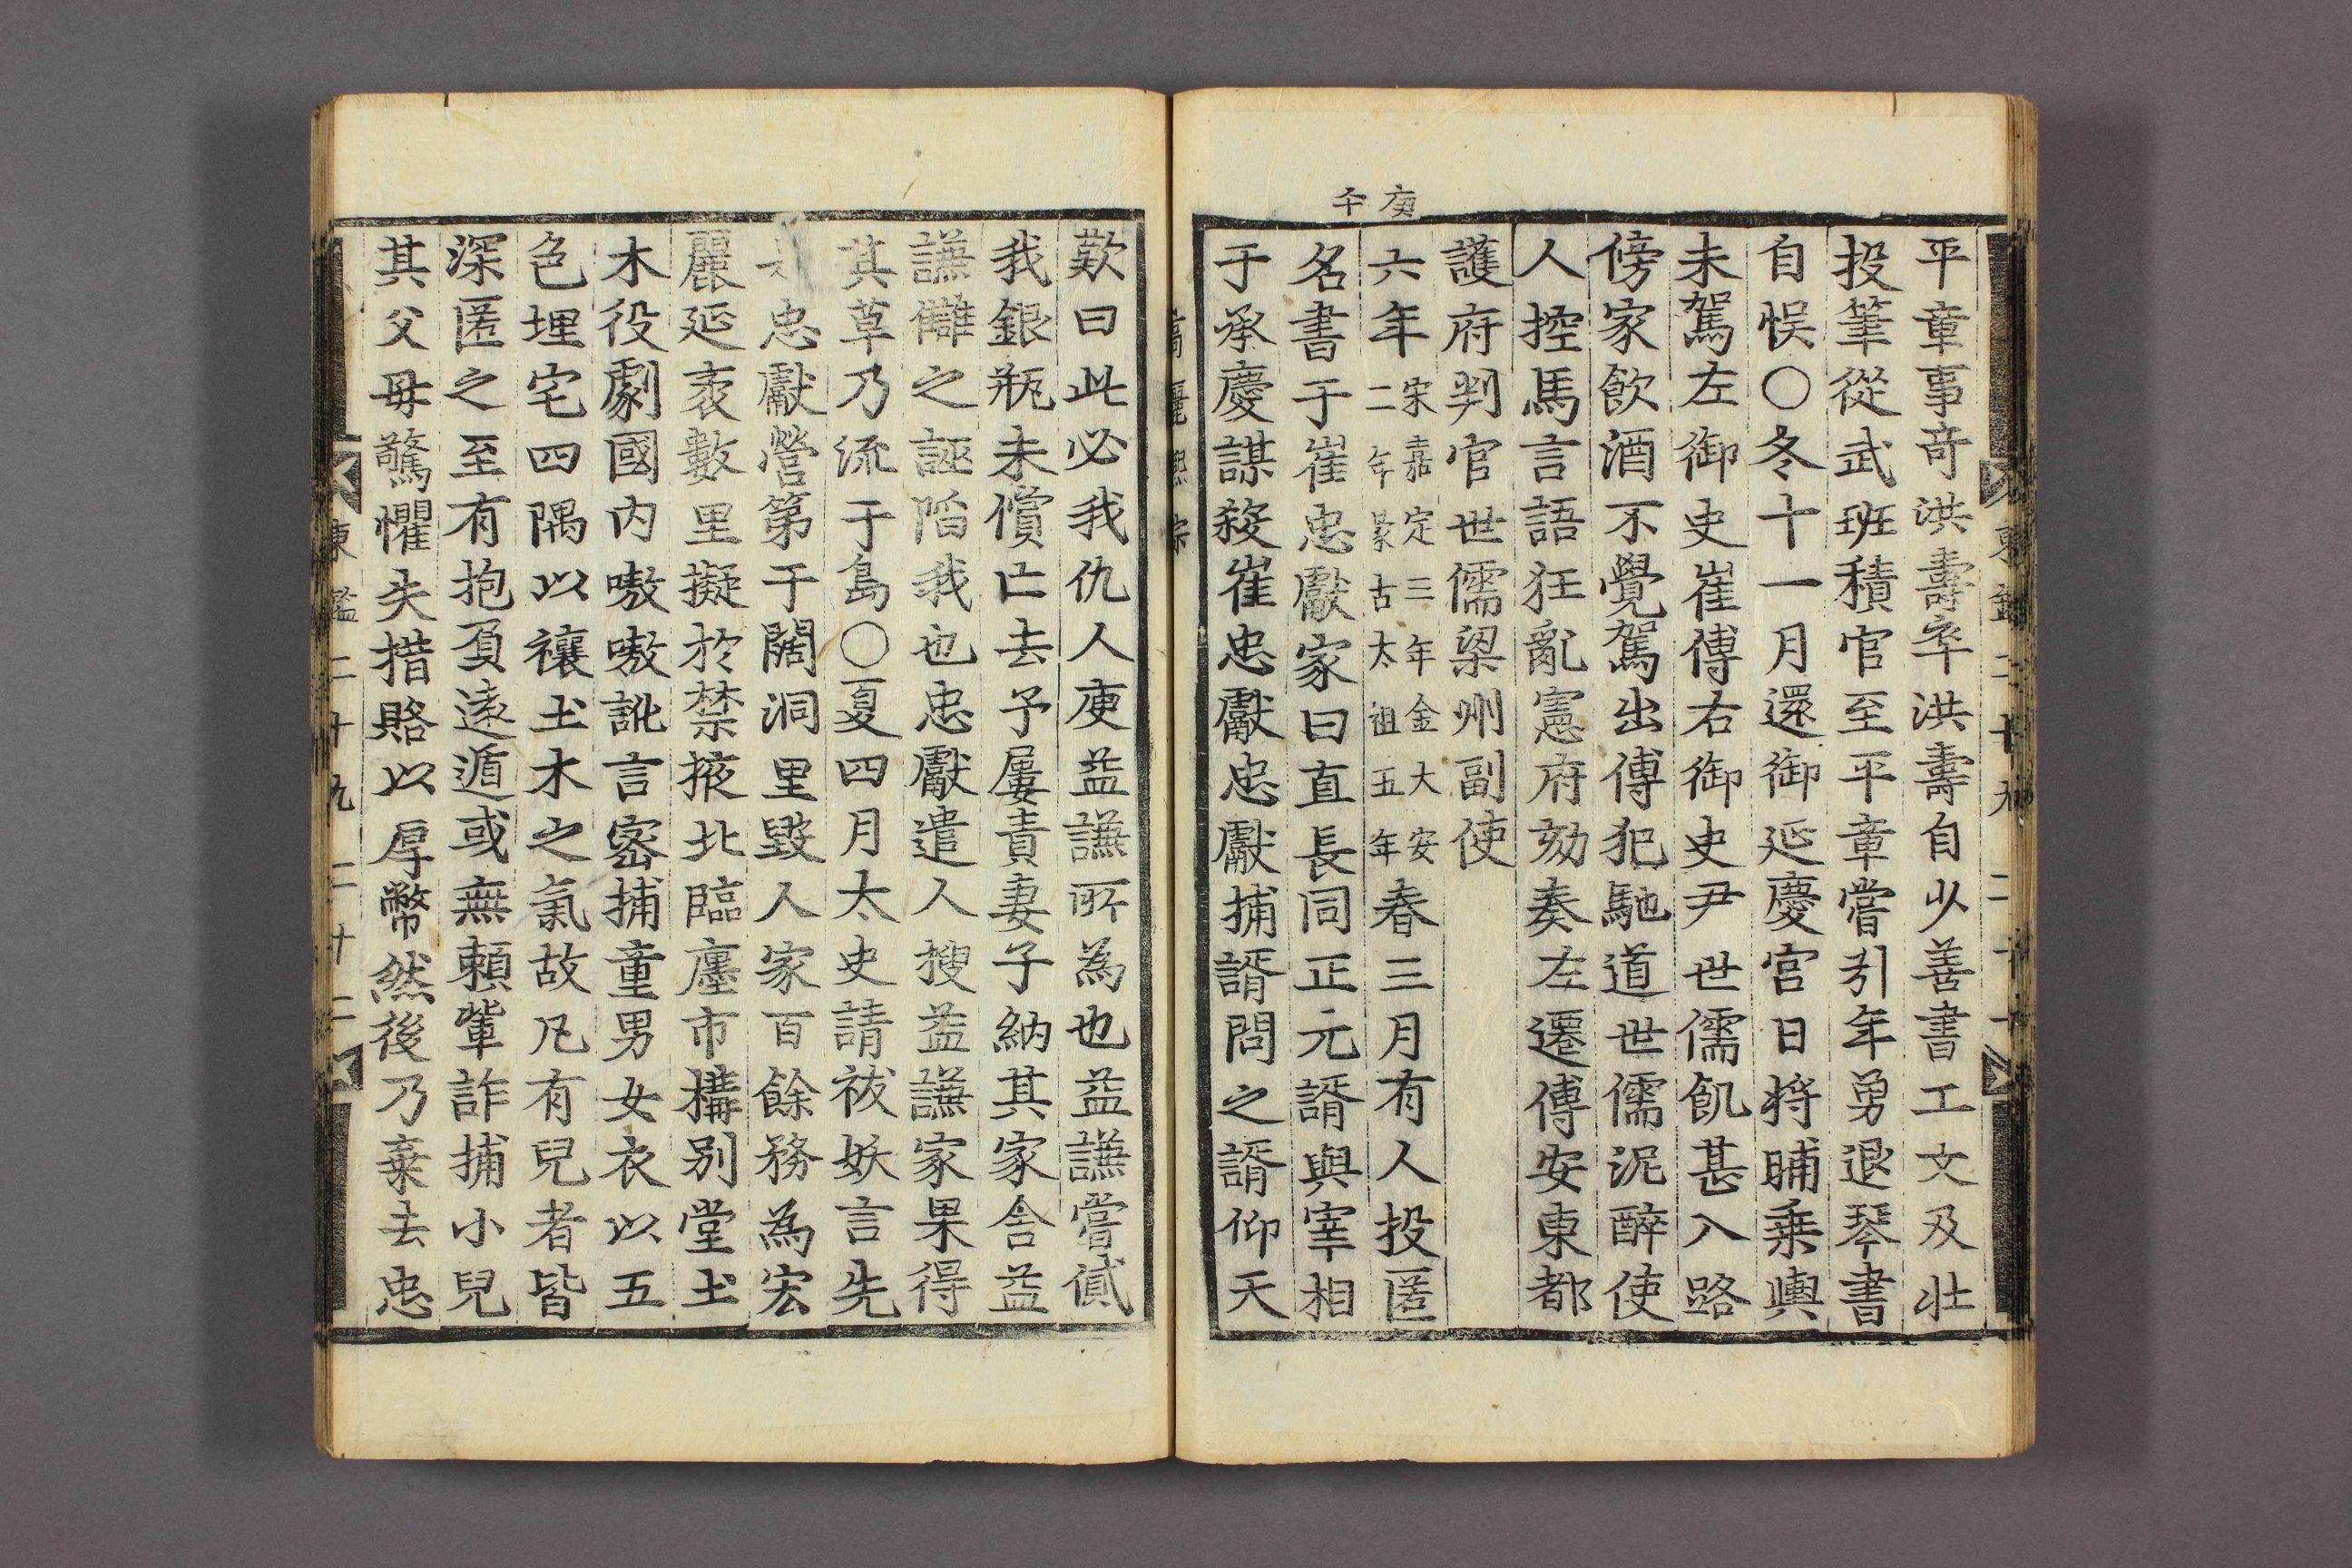 庚午
平章事竒洪壽卒洪壽自少善書工文及壯
投筆從武班積官至平章嘗引年勇退琴書
自悞○冬十一月還御延慶宮日將晡乗輿
未駕左御史崔傅右御史尹世儒飢甚入路
傍家飲酒不覺駕出傅犯馳道世儒泥醉使
人控馬言語狂亂憲府劾奏左遷傅安東都
護府判官世儒梁州副使
六年宋嘉定三年金大安二年蒙古太祖五年春三月有人投匿
名書于崔忠獻家曰直長同正元諝與宰相
于承慶謀殺崔忠獻忠獻捕諝問之諝仰天
高麗熙宗
歎曰此必我仇人庾益謙所為也益謙嘗貸
我銀瓶未償亡去予屢責妻子納其家舎益
謙讎之誣陷我也忠獻遣人搜益謙家果得
其草乃流于島○夏四月太史請祓妖言先
是忠獻營第于闊洞里毀人家百餘務為宏
麗延袤數里擬於禁掖北臨廛市構別堂土
木役劇國内嗷嗷訛言密捕童男女衣以五
色埋宅四隅以禳土木之氣故凡有兒者皆
深匿之至有抱負遠遁或無頼輩詐捕小兒
其父母驚懼失措賂以厚幣然後乃棄去忠
東鑑二十九 二十二